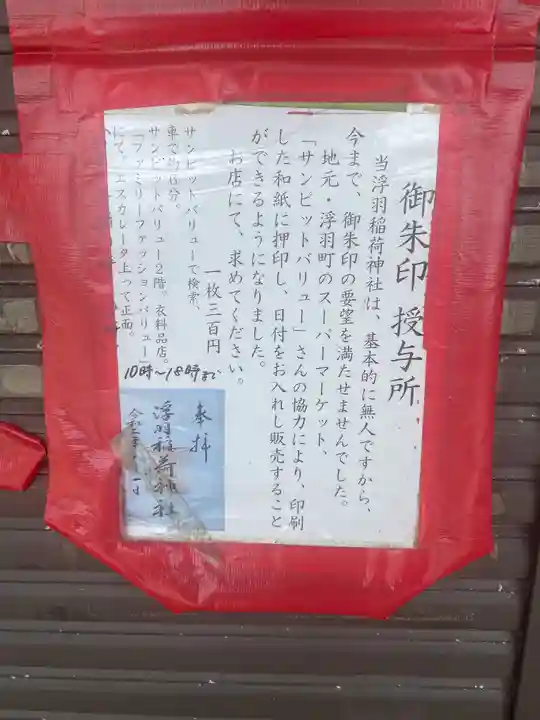 御朱印 授与所
当浮羽稲荷神社は、基本的に無人ですから、
今まで、御朱印の要望を満たせませんでした。
地元・浮羽町のスーパーマーケット、
「サンピットバリュー」さんの協力により、印刷
した和紙に押印し、日付をお入れし販売すること
ができるようになりました。
お店にて、求めてください。
一枚三百円
サンピットバリューで検索、
車で約6分。
サンピットバリュー2階。衣料品店。
「ファミリーファッションバリュー」
にて、エスカレータ上って正面。
10時〜18時まで
奉拝
浮羽稲荷神社